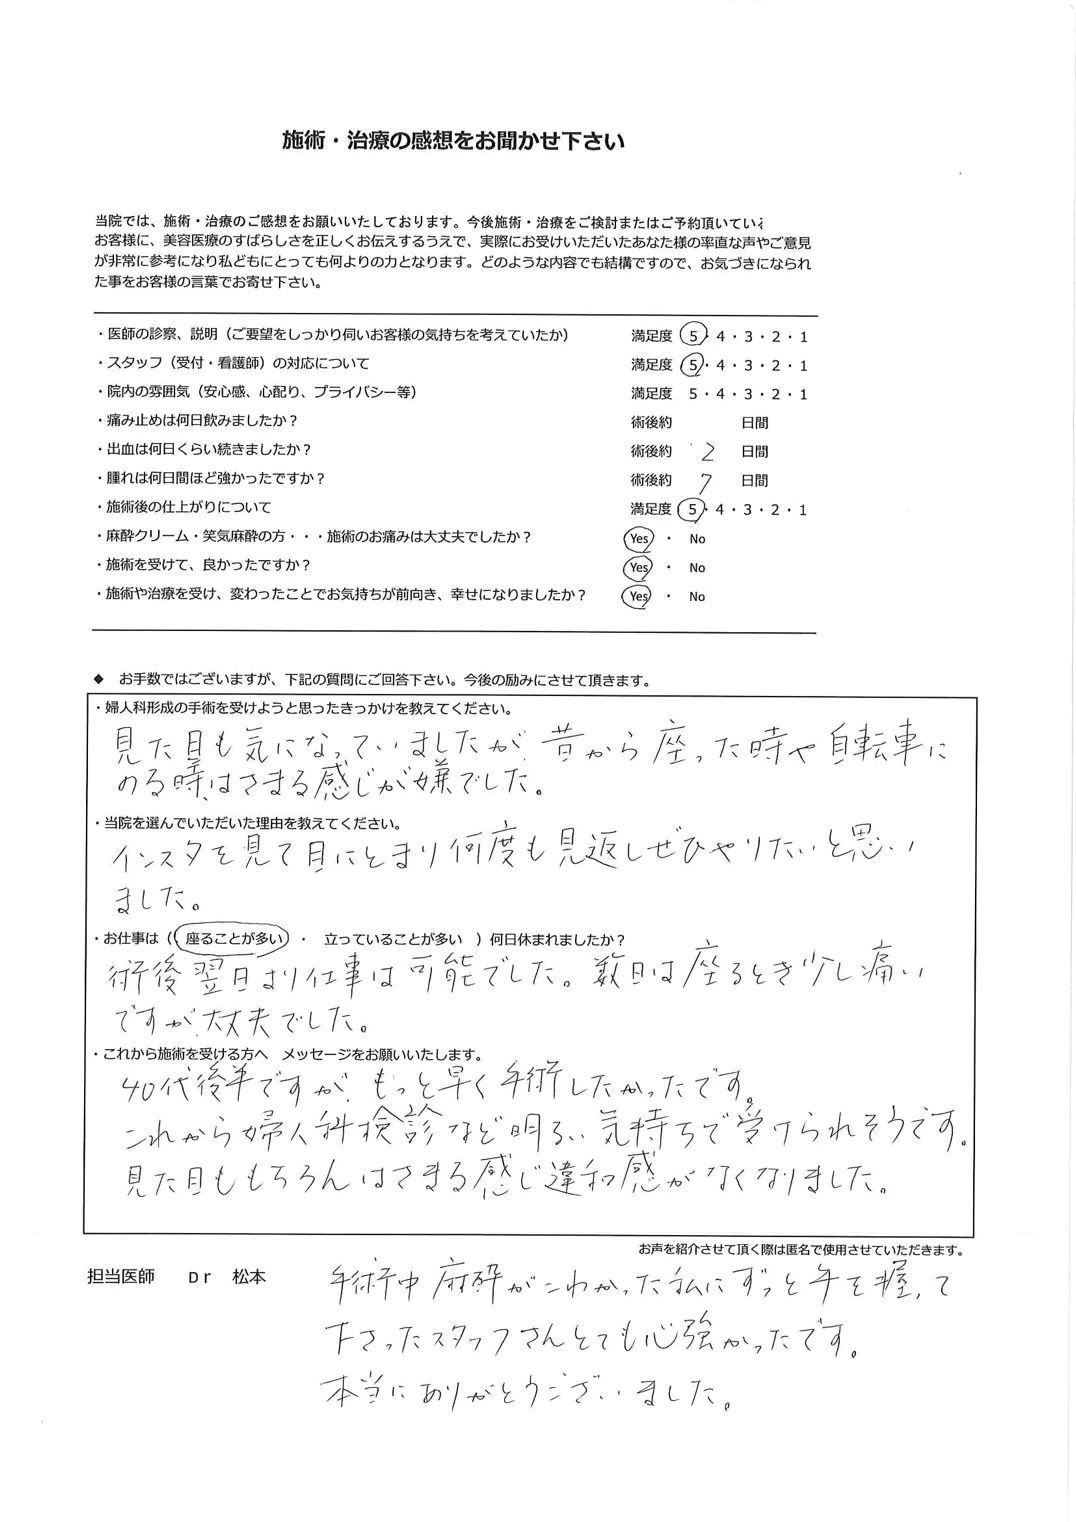 施術・治療の感想をお聞かせ下さい
当院では、施術・治療のご感想をお願いいたしております。今後施術・治療をご検討またはご予約頂いてい
お客様に、美容医療のすばらしさを正しくお伝えするうえで、実際にお受けいただいたあなた様の率直な声やご意見
が非常に参考になり私どもにとっても何よりの力となります。どのような内容でも結構ですので、お気づきになられ
た事をお客様の言葉でお寄せ下さい。
・医師の診察、説明（ご要望をしっかり伺いお客様の気持ちを考えていたか） 満足度 5・4・3・2・1
・スタッフ（受付・看護師）の対応について 満足度 5・4・3・2・1
・院内の雰囲気（安心感、心配り、プライバシー等） 満足度 5・4・3・2・1
・痛み止めは何日飲みましたか？ 術後約 日間
・出血は何日くらい続きましたか？ 術後約 2 日間
・腫れは何日間ほど強かったですか？ 術後約 7 日間
・施術後の仕上がりについて 満足度 5・4・3・2・1
・麻酔クリーム・笑気麻酔の方・・・施術のお痛みは大丈夫でしたか？ Yes ・ No
・施術を受けて、良かったですか？ Yes ・ No
・施術や治療を受け、変わったことでお気持ちが前向き、幸せになりましたか？ Yes ・ No
◆ お手数ではございますが、下記の質問にご回答下さい。今後の励みにさせて頂きます。
・婦人科形成の手術を受けようと思ったきっかけを教えてください。
見た目も気になっていましたが、昔から座った時や自転車に
のる時、はさまる感じが嫌でした。
・当院を選んでいただいた理由を教えてください。
インスタを見て目にとまり何度も見返しぜひやりたいと思い
ました。
・お仕事は（ 座ることが多い ・ 立っていることが多い ）何日休まれましたか？
術後翌日より仕事は可能でした。数日は座るとき少し痛い
ですが、大丈夫でした。
・これから施術を受ける方へ メッセージをお願いいたします。
40代後半ですが、もっと早く手術したかったです。
これから婦人科検診など明るい気持ちで受けられそうです。
見た目ももちろんはさまる感じ違和感がなくなりました。
お声を紹介させて頂く際は匿名で使用させていただきます。
担当医師 Dr 松本
手術中麻酔がこわかった私にずっと手を握って
下さったスタッフさんとても心強かったです。
本当にありがとうございました。